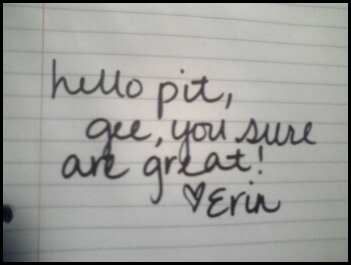 hello pit,
gee, you sure
are great!
♡Erin